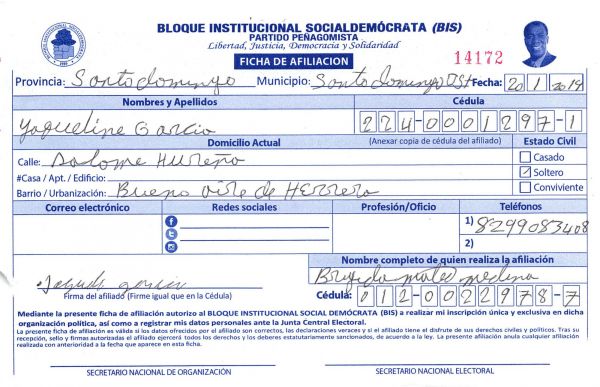 BLOQUE INSTITUCIONAL SOCIALDEMÓCRATA (BIS)
PARTIDO PEÑAGOMISTA
Libertad, Justicia, Democracia y Solidaridad
FICHA DE AFILIACION
14172
Provincia: Santo domingo Municipio: Santo Domingo Fecha: 20 1 2019
Nombres y Apellidos Cédula
Yaqueline Garcia 224-0001297-1
Domicilio Actual (Anexar copia de cédula del afiliado) Estado Civil
Calle: Salome Hureña Casado
#Casa / Apt. / Edificio: Soltero
Barrio / Urbanización: Bueno Aire de Herrera Conviviente
Correo electrónico Redes sociales Profesión/Oficio Teléfonos
1) 8299083408
2)
Nombre completo de quien realiza la afiliación
Brigida mateo medina
Firma del afiliado (Firme igual que en la Cédula) Cédula: 012-0022978-7
Mediante la presente ficha de afiliación autorizo al BLOQUE INSTITUCIONAL SOCIAL DEMÓCRATA (BIS) a realizar mi inscripción única y exclusiva en dicha
organización política, así como a registrar mis datos personales ante la Junta Central Electoral.
La presente ficha de afiliación es válida si los datos ofrecidos por el afiliado son correctos, las declaraciones veraces y si el afiliado tiene el disfrute de sus derechos civiles y políticos. Tras su
recepción, sello y firmas autorizadas el afiliado ejercerá todos los derechos y los deberes estatutariamente sancionados, de acuerdo a la ley. La presente afiliación anula cualquier afiliación
realizada con anterioridad a la fecha que aparece en esta ficha.
SECRETARIO NACIONAL DE ORGANIZACIÓN SECRETARIO NACIONAL ELECTORAL